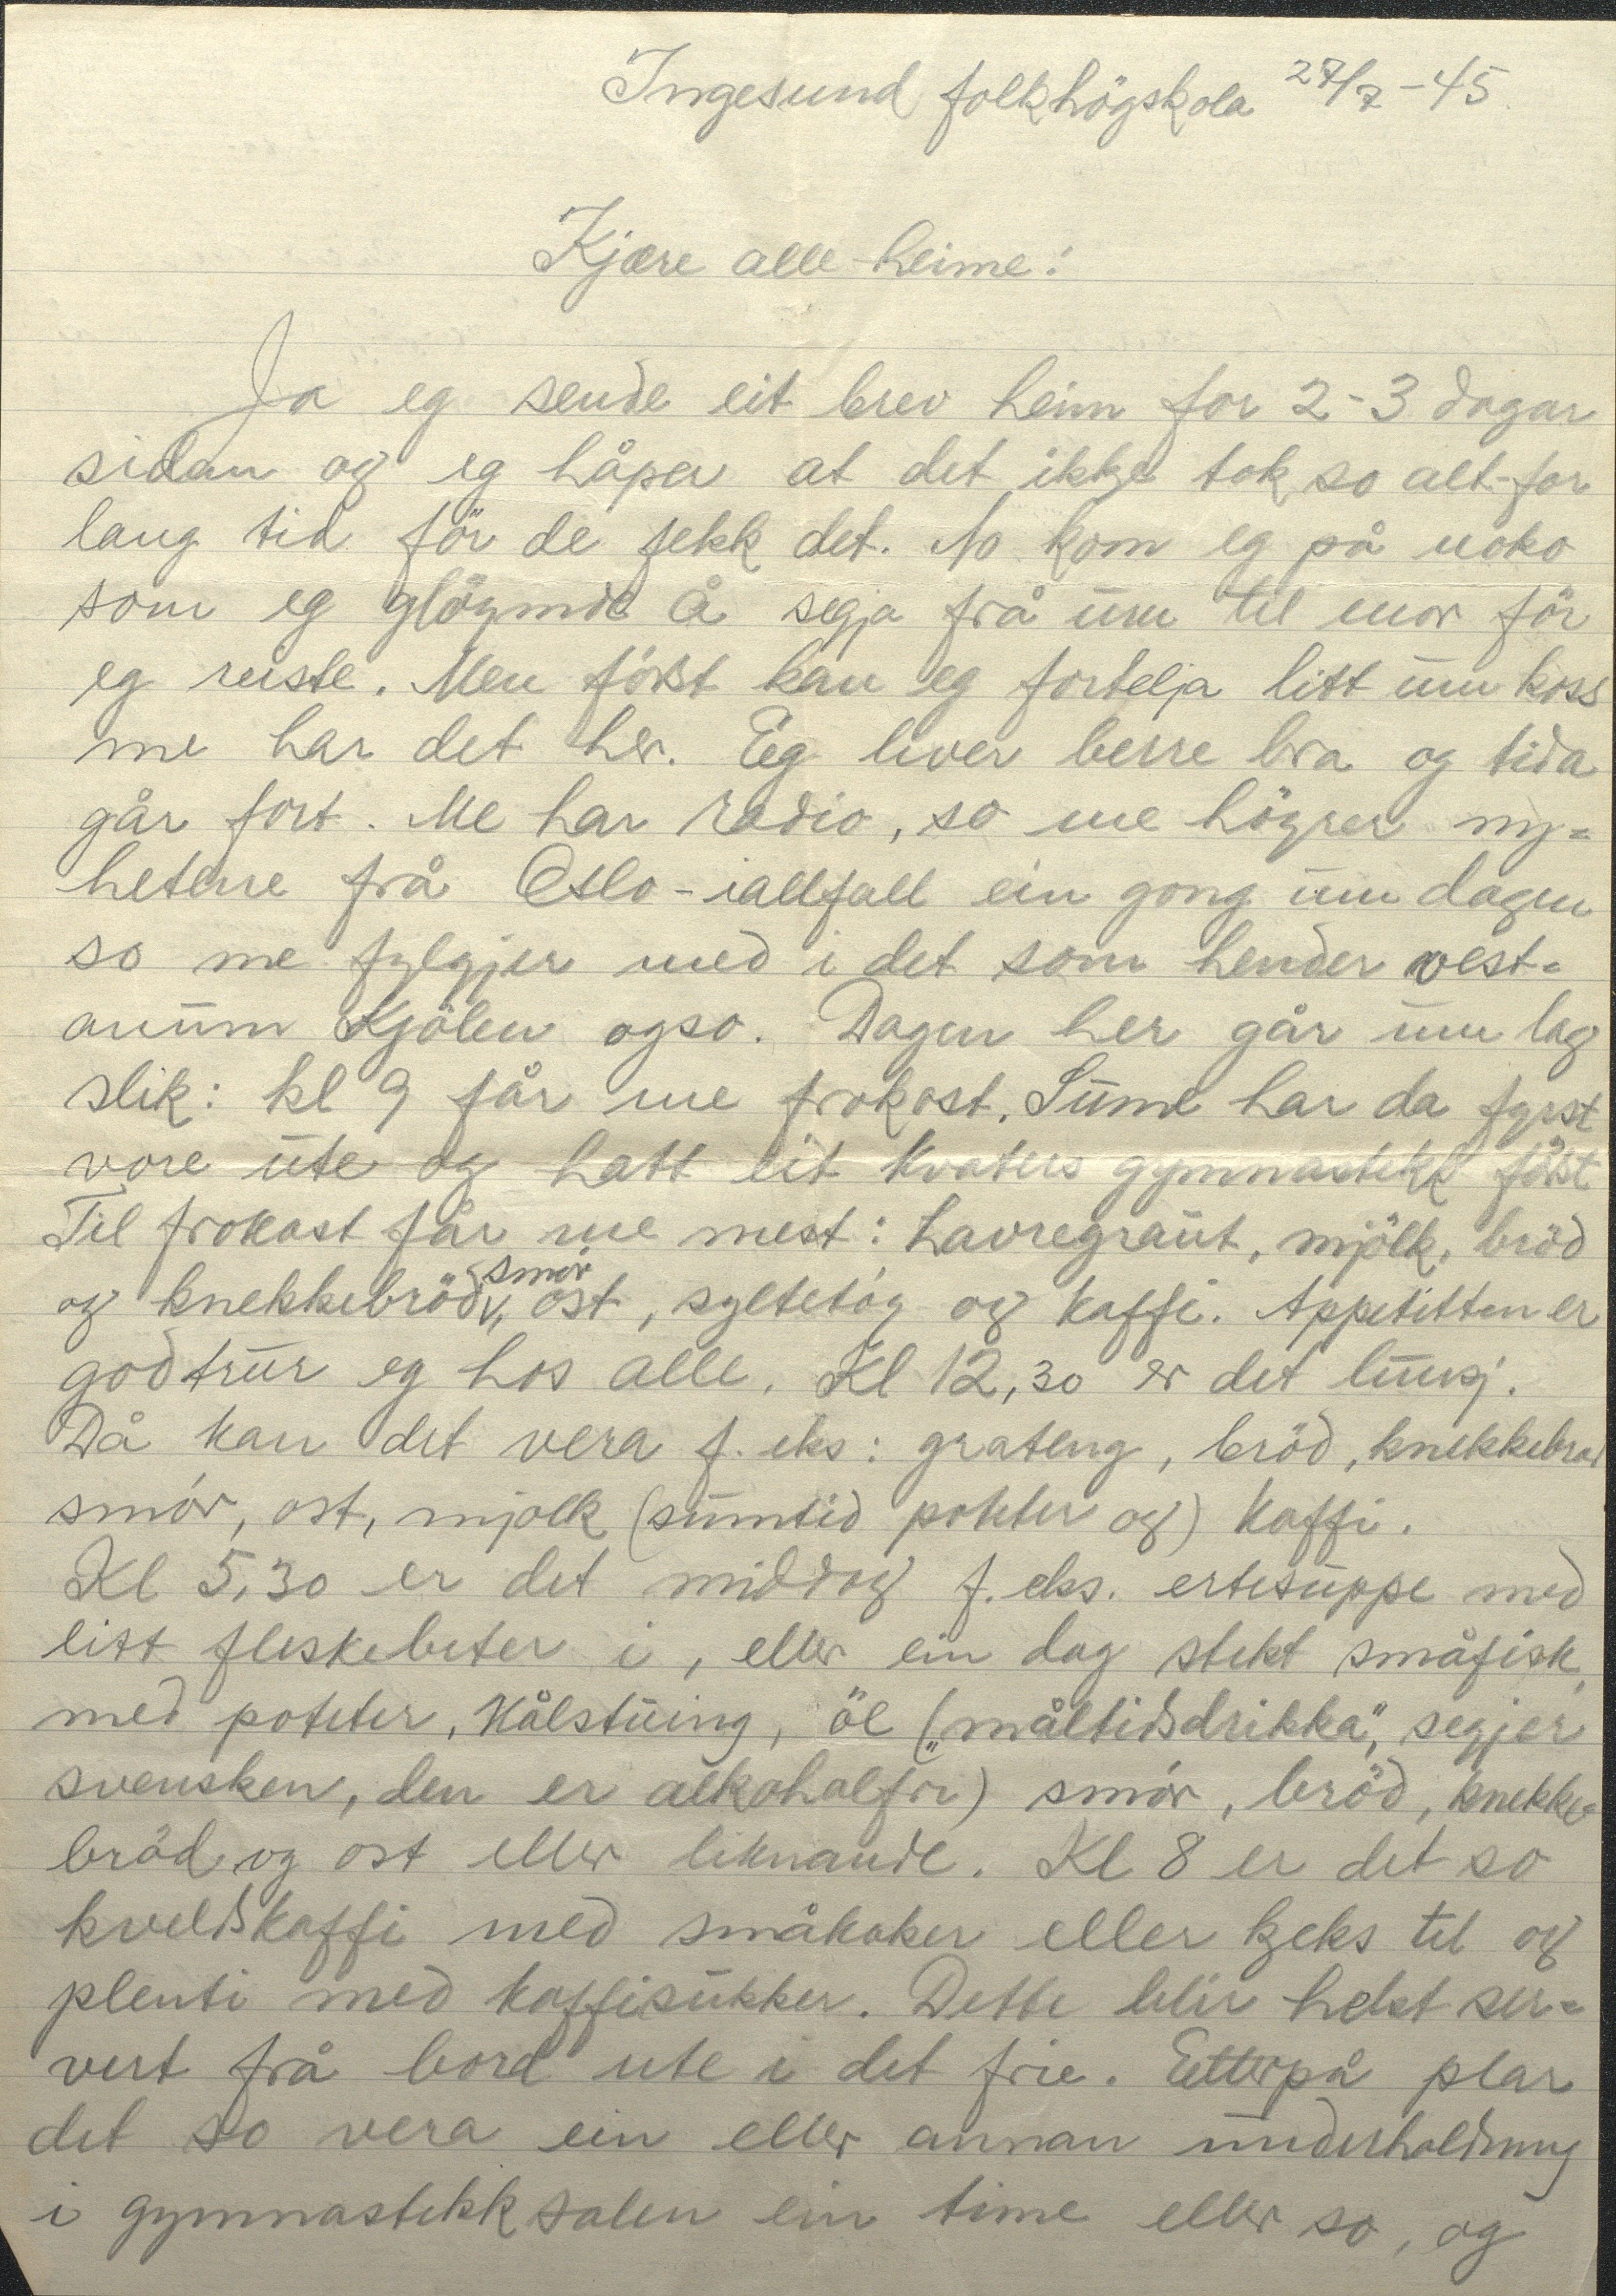 Ingesund folkhögskola 27/7-45.
Kjære alle heime!
Ja eg sende eit brev heim for 2-3 dagar
sidan og eg håper at det ikkje tok so alt-for
lang tid för de fekk det. No kom eg på noko
som eg glöymde å segja frå um til mor för
eg reiste. Men först kan eg fortelja litt um koss
me har det her. Eg liver berre bra og tida
går fort. Me har radio, so me höyrer ny=
hetene frå Oslo - iallfall ein gong um dagen
so me fylgjer med i det som hender vest=
anum Kjölen ogso. Dagen her går um lag
slik: kl 9 får me frokost. Sume har da fyrst
vore ute og hatt eit kvaters gymnastikk först
Til frokost får me mest: havregraut, mjölk, bröd
og knekkebröd, smör, ost, syltetöy og kaffi. Appetitten er
god trur eg hos alle. Kl 12,30 er det lunsj.
Då kan det vera f. eks: grateng, bröd, knekkebröd
smör, ost, mjölk (sumtid poteter og) kaffi.
Kl 5,30 er det middag f. eks. ertesuppe med
litt fleskebeter i, eller ein dag stekt småfisk,
med poteter, kålstuing, öl („måltidsdrikka", segjer
svensken, den er alkoholfri) smör, bröd, knekke=
bröd og ost eller liknande. Kl 8 er det so
kveldskaffi med småkaker eller kjeks til og
plenti med kaffisukker. Dette blir helst ser=
vert frå bord ute i det frie. Etterpå plar
det so vera ein eller annan underholdning
i gymnastikksalen ein time eller so, og